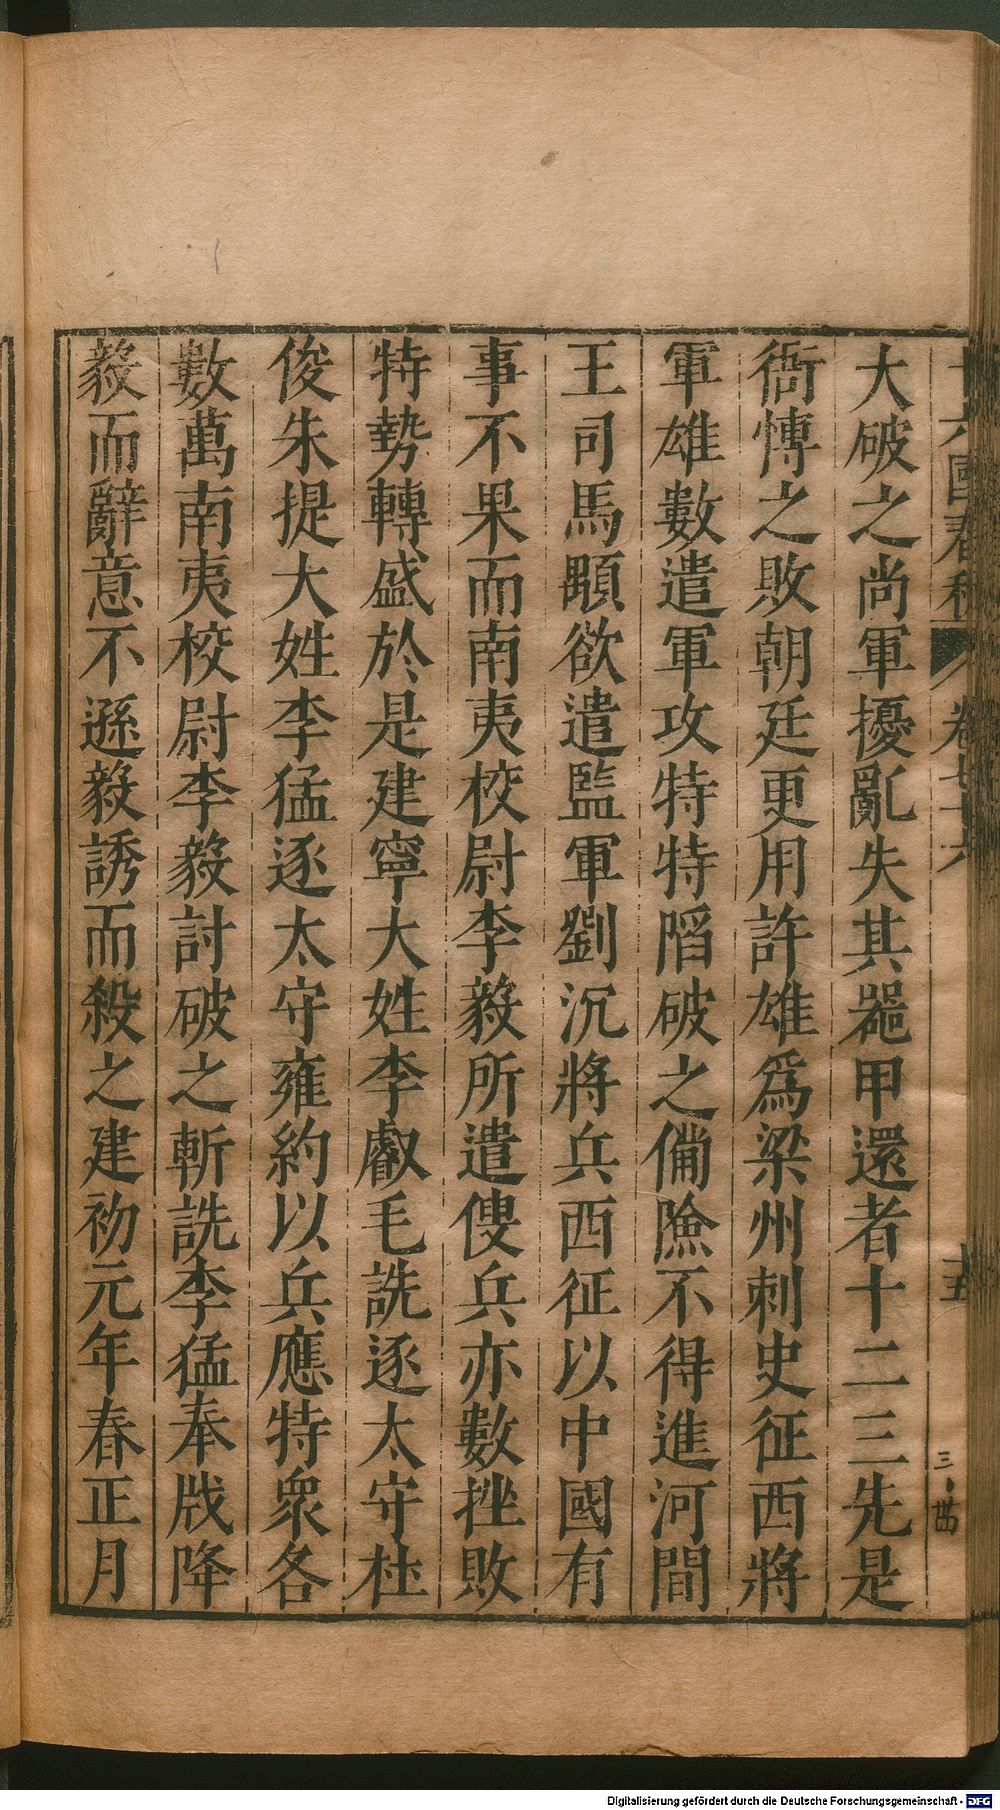 十六國春秋 卷七十六 十五
大破之尚軍擾亂失其噐甲還者十二三先是
衙慱之敗朝廷更用許雄爲梁州刺史征西將
軍雄數遣軍攻特特陷破之俻險不得進河間
王司馬顒欲遣監軍劉沉將兵西征以中國有
事不果而南夷校尉李毅所遣傁兵亦數挫敗
特勢轉盛於是建寧大姓李叡毛詵逐太守杜
俊朱提大姓李猛逐太守雍約以兵應特衆各
數萬南夷校尉李毅討破之斬詵李猛奉牋降
毅而辭意不遜毅誘而殺之建初元年春正月
Digitalisierung gefördert durch die Deutsche Forschungsgemeinschaft - DFG